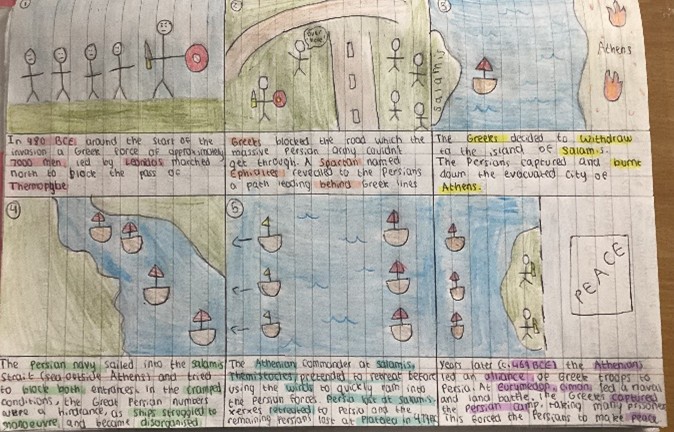 ①
In 480 BCE around the start of the
invasion a Greek force of approximately
7000 men, led by Leonidas marched
north to block the pass of
Themopylae
②
over here!
Greeks blocked the road which the
massive Persian army couldnt
get through. A Spartan named
Ephialtes revealed to the Persians
a path leading behind Greek lines
③
Salamis
Athens
The Greeks decided to withdraw
to the island of Salamis.
The Persians captured and burnt
down the evacuated city of
Athens.
④
The Persian navy sailed into the Salamis
Strait (sea outside Athens) and tried
to block both entrances. In the cramped
conditions, the Great Persian numbers
were a hindrance, as ships struggled to
manoeuvre, and became disorganised
⑤
The Athenian commander at Salamis,
Themistocles, pretended to retreat before
the to quickly ram into
the Persian forces. Persia lost at Salamis.
Xerxes retreated to Persia and the
remaining Persians lost at Plataea in 479BC
PEACE
Years later (c. 469 BCE) the Athenians
led an alliance of Greek troops to
Persia. At Eurymedon, Cimon led a naval
and land battle. The Greeks captured
the Persian camp, taking many prisoners
This forced the Persians to make peace